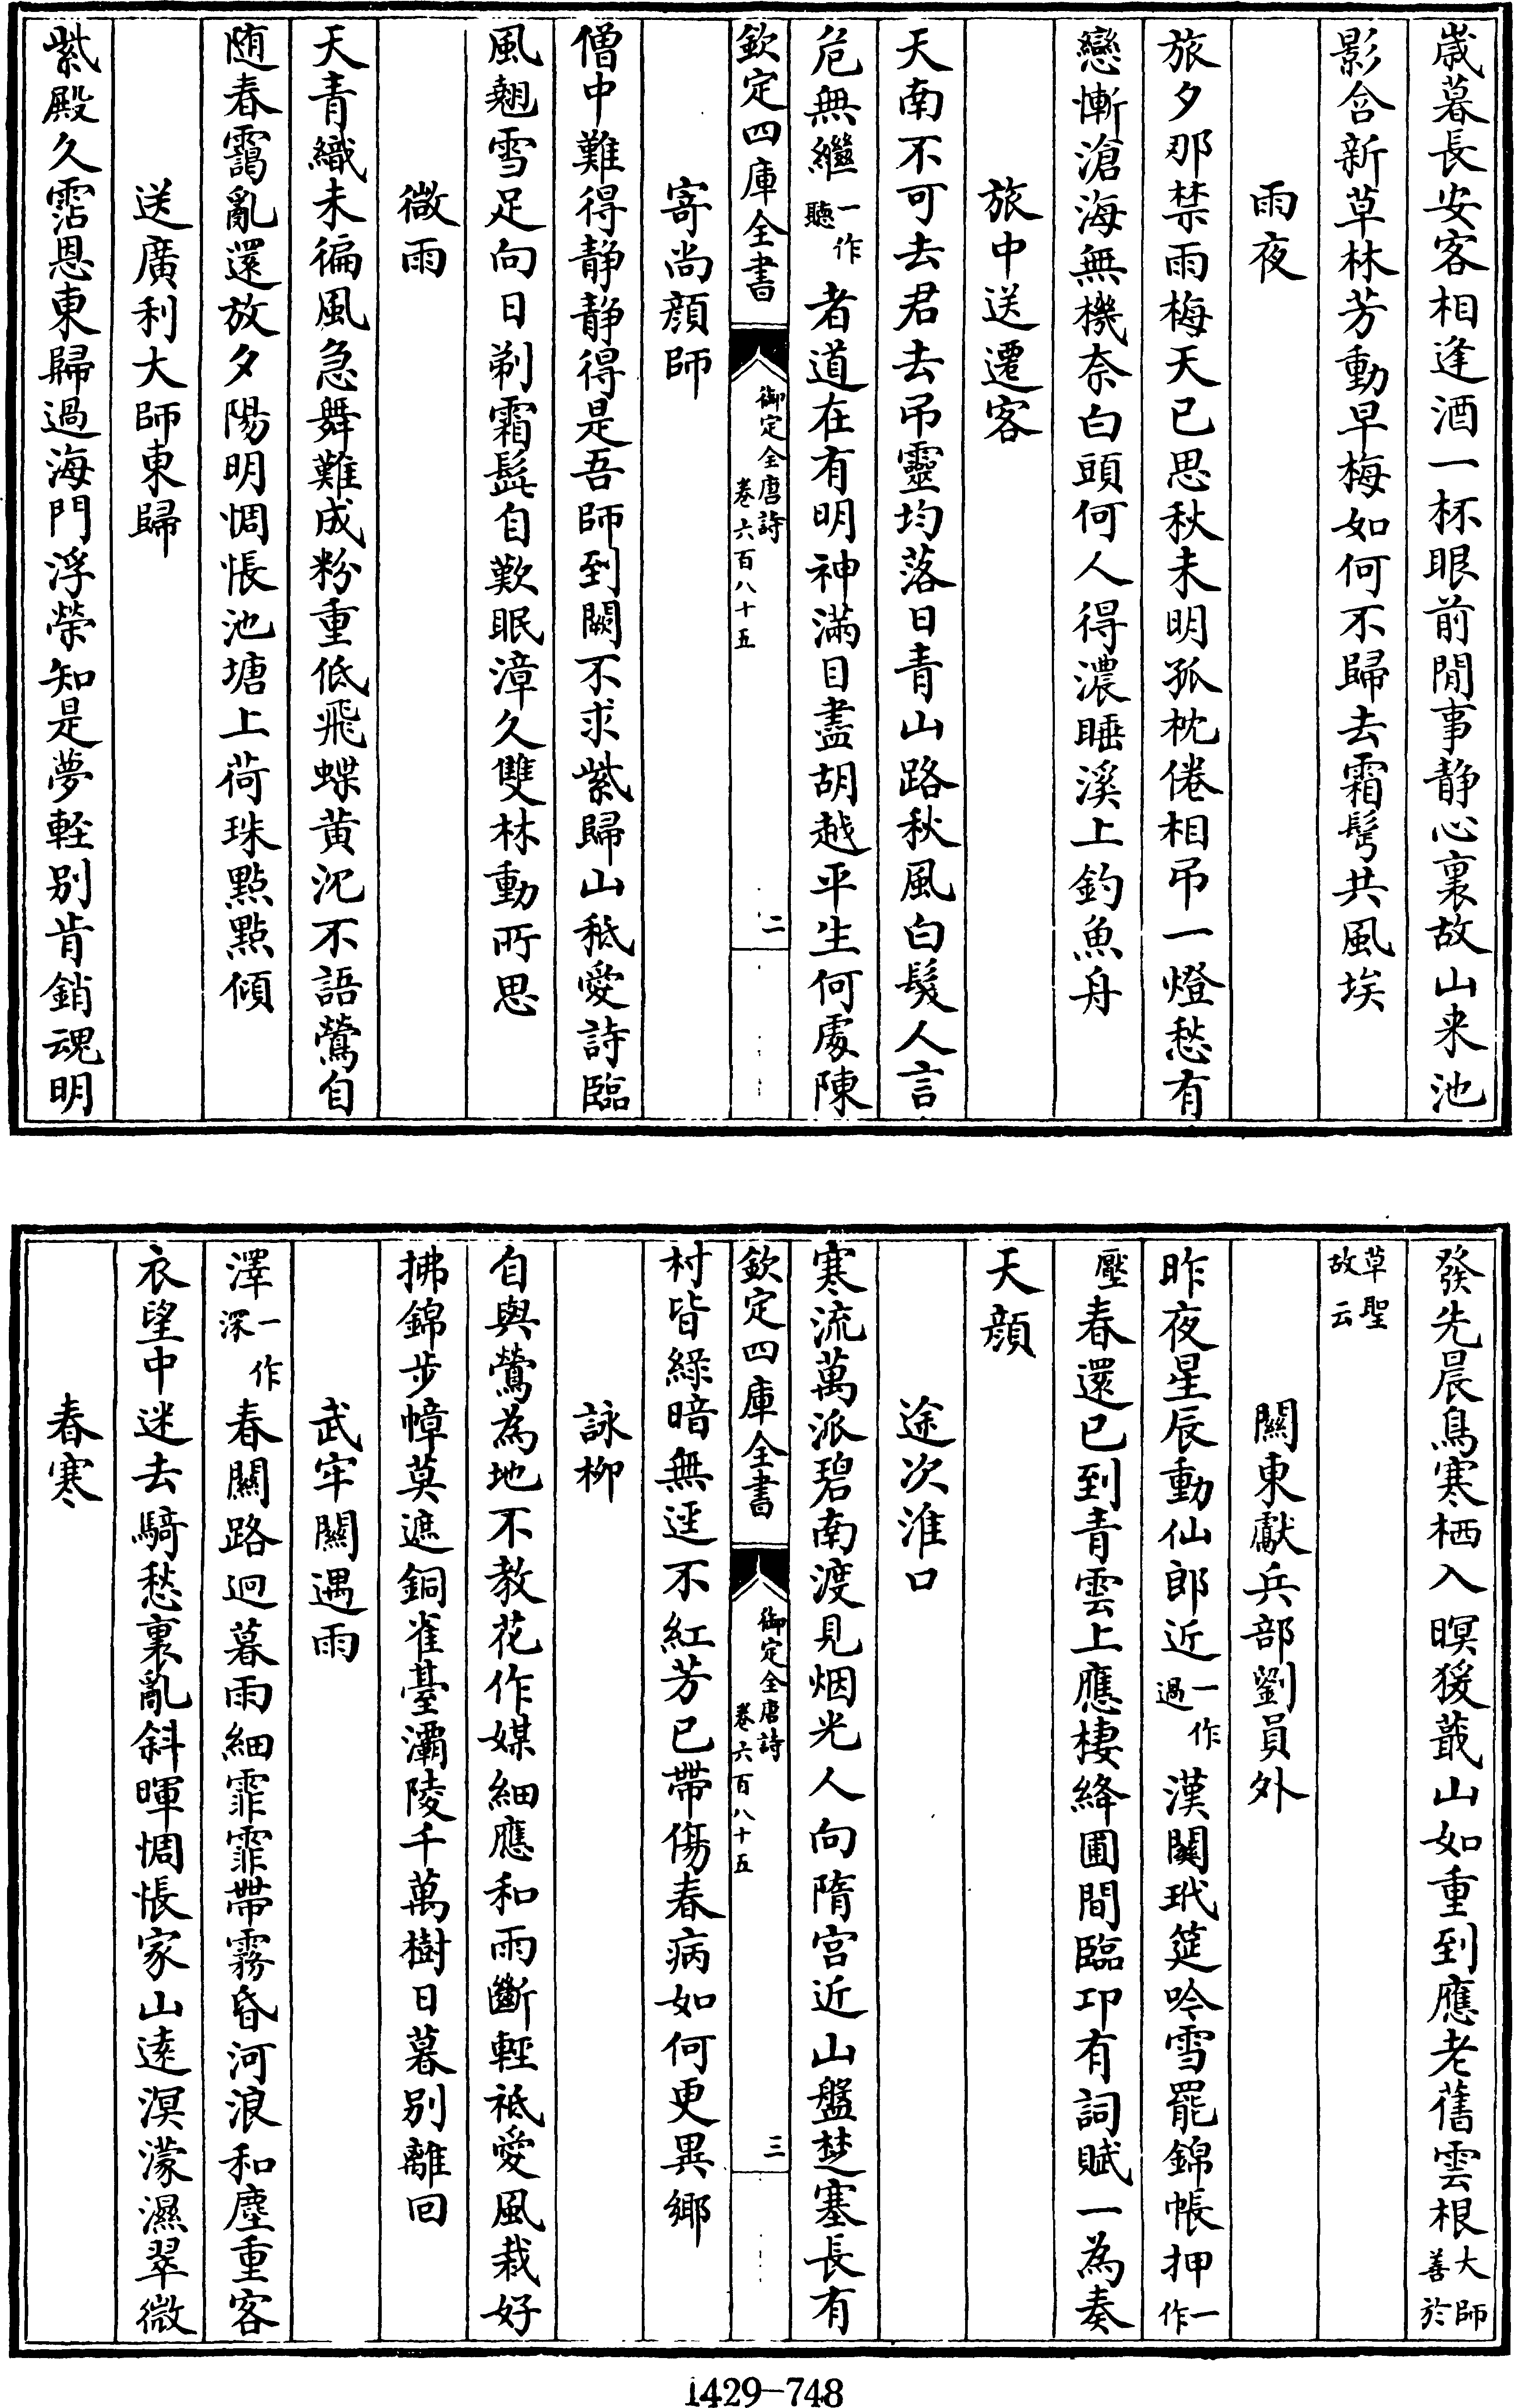 歳暮長安客相逢酒一杯眼前閒事静心裏故山来池
影含新草林芳動早梅如何不歸去霜髩共風埃
雨夜
旅夕那禁雨梅天已思秋未明孤枕倦相弔一燈愁有
戀慚滄海無機奈白頭何人得濃睡溪上釣魚舟
旅中送遷客
天南不可去君去弔靈均落日青山路秋風白髮人言
危無繼一作聽者道在有明神滿目盡胡越平生何處陳
欽定四庫全書 御定全唐詩卷六百八十五 二
寄尚顔師
僧中難得静静得是吾師到闕不求紫歸山秪愛詩臨
風翹雪足向日剃霜髭自歎眠漳久雙林動所思
微雨
天青織未徧風急舞難成粉重低飛蝶黄沉不語鶯自
随春靄亂還放夕陽明惆悵池塘上荷珠點點傾
送廣利大師東歸
紫殿久霑恩東歸過海門浮榮知是夢輕别肯銷魂明
發先晨鳥寒栖入暝猨蕺山如重到應老舊雲根大師善於
草聖故云
關東獻兵部劉員外
昨夜星辰動仙郎近一作過漢關玳筵吟雪罷錦帳押一作
壓春還已到青雲上應棲絳圃間臨卭有詞賦一為奏
天顔
途次淮口
寒流萬派碧南渡見烟光人向隋宫近山盤楚塞長有
欽定四庫全書 御定全唐詩卷六百八十五 三
村皆緑暗無逕不紅芳已帶傷春病如何更異鄉
詠栁
自與鶯為地不教花作媒細應和雨斷輕袛愛風栽好
拂錦步幛莫遮銅雀臺灞陵千萬樹日暮别離回
武牢關遇雨
澤一作深春關路迥暮雨細霏霏帶霧昏河浪和塵重客
衣望中迷去騎愁裏亂斜暉惆悵家山逺溟濛濕翠微
春寒
1429-748